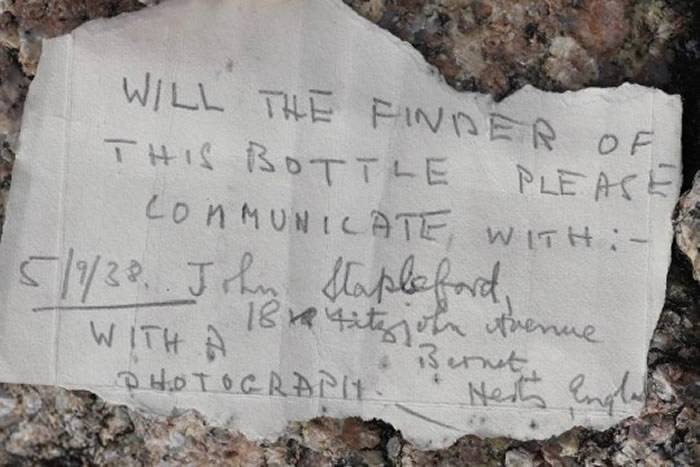 WILL THE FINDER OF
THIS BOTTLE PLEASE
COMMUNICATE WITH:-
5/9/38. John Stapleford,
18 Fitzjohn Avenue
WITH A Barnet,
PHOTOGRAPH. Herts, Engla